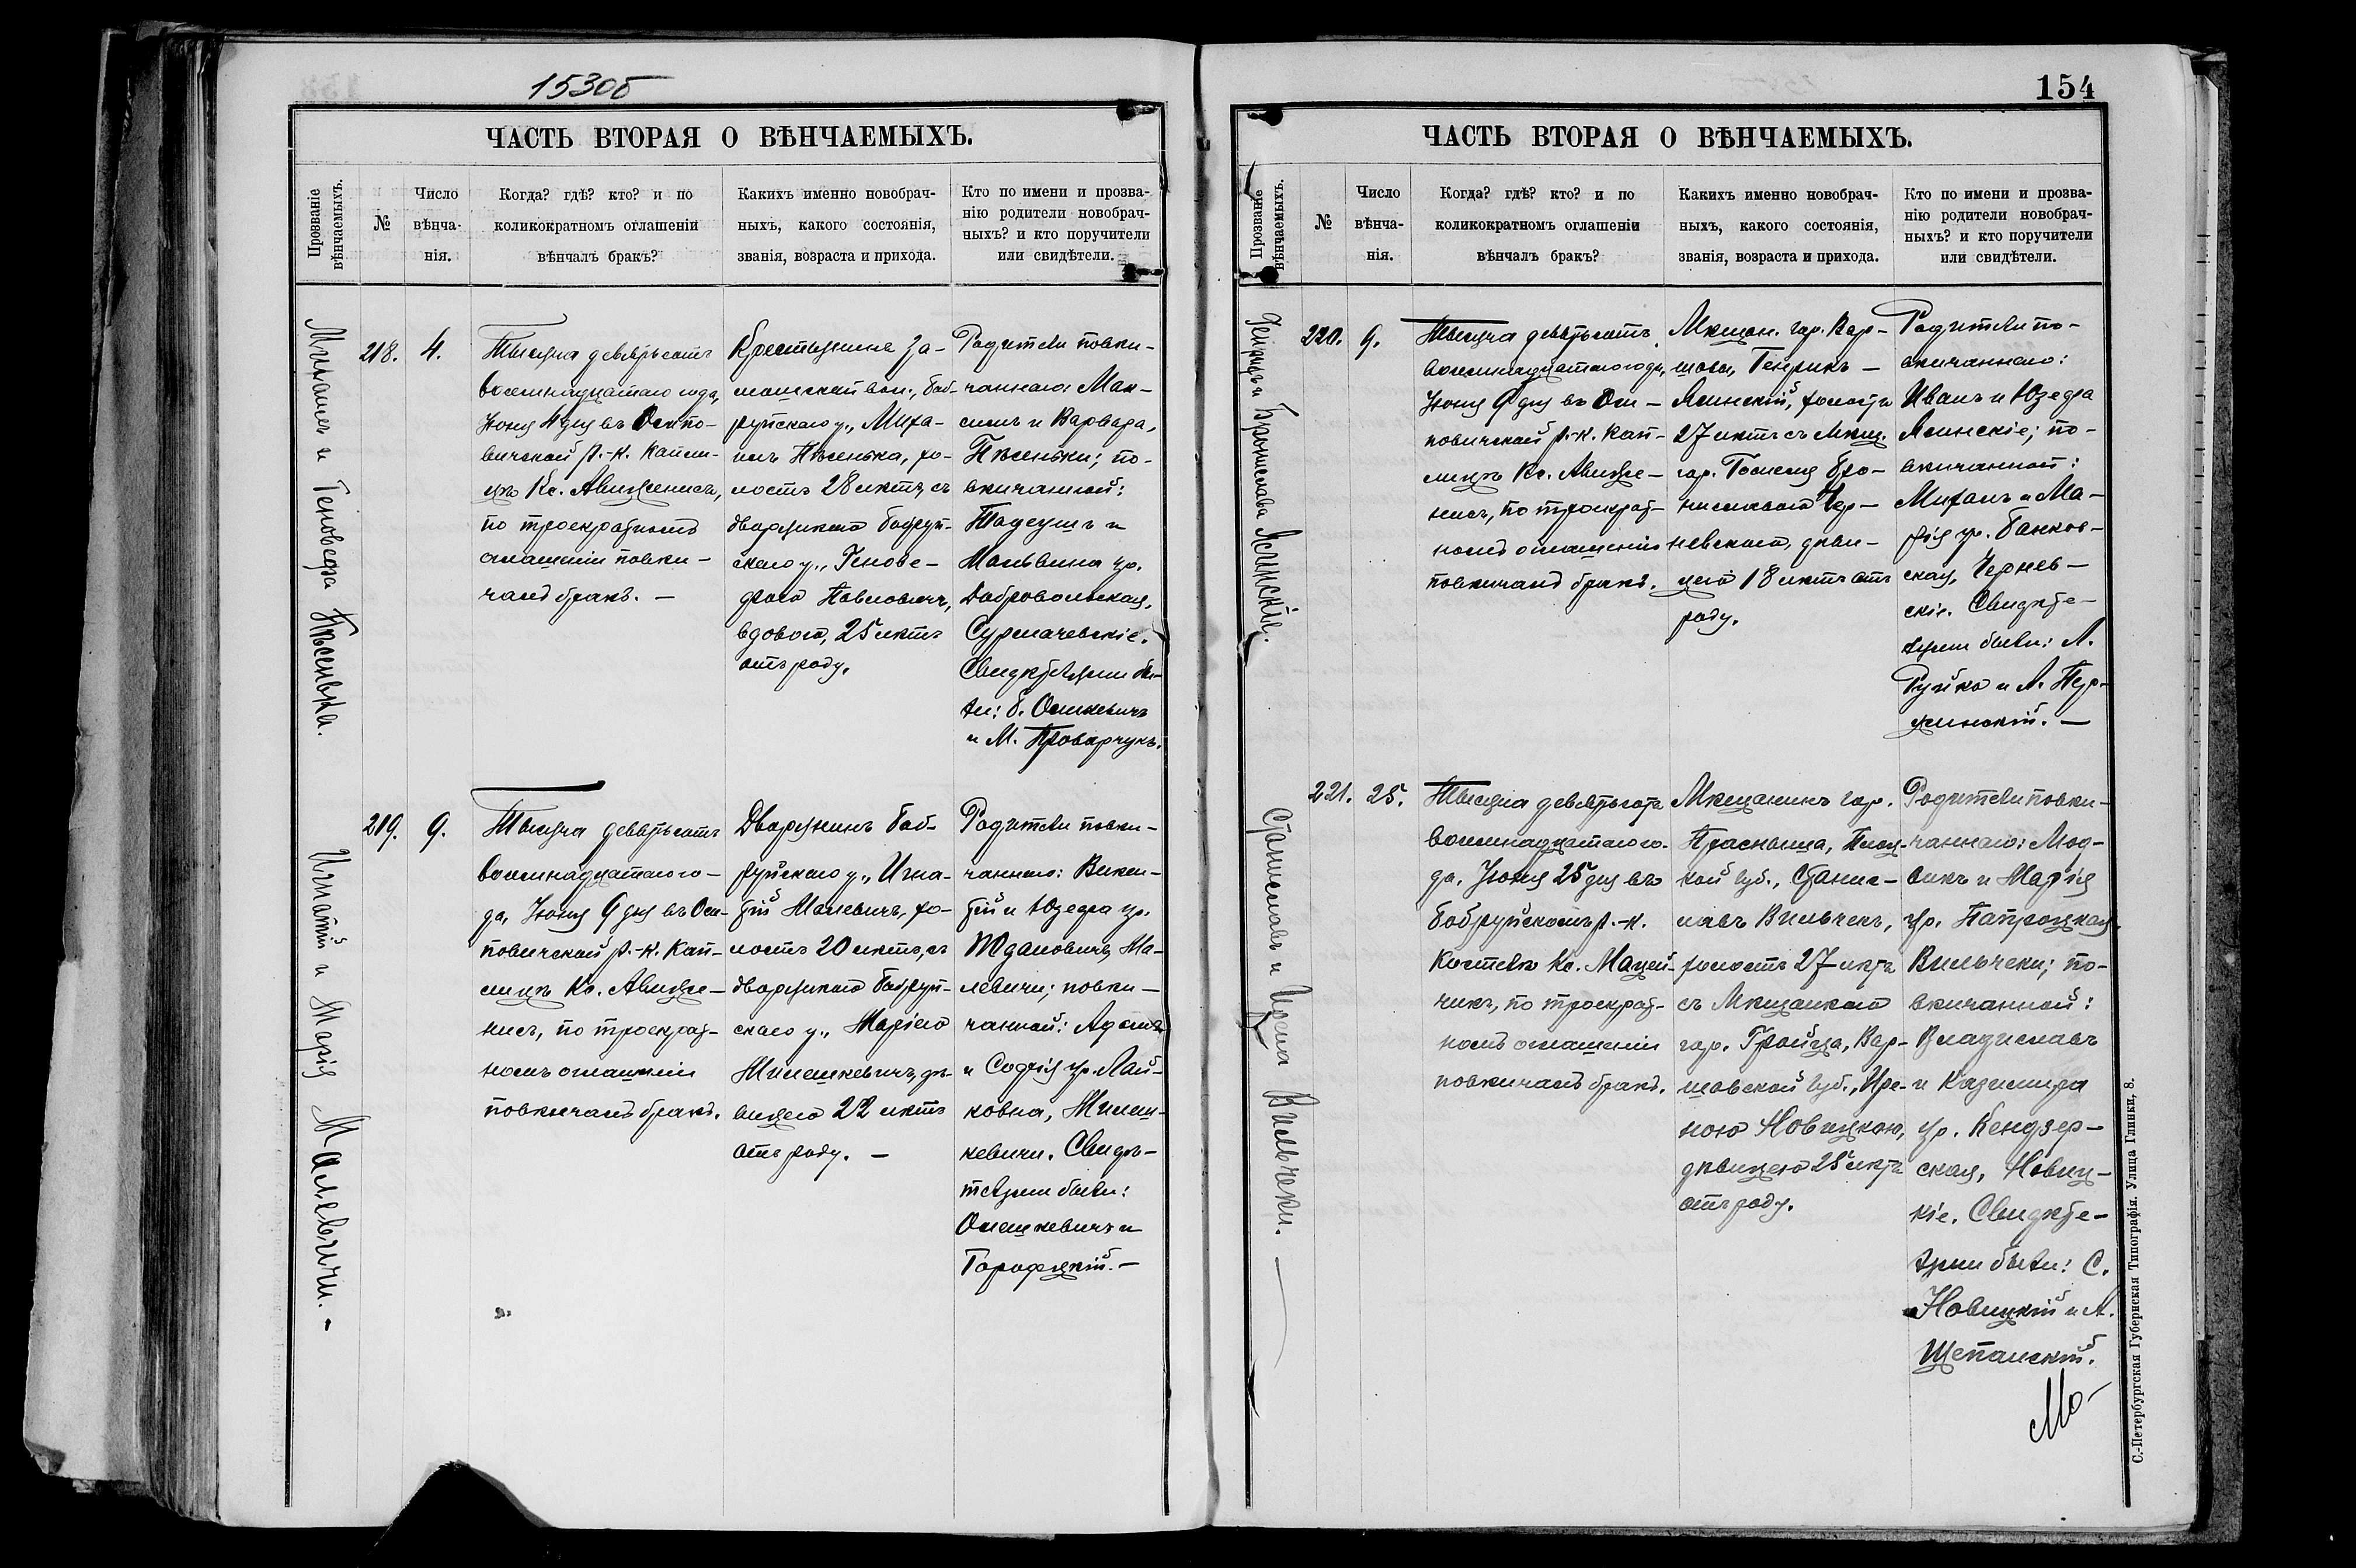 153об
ЧАСТЬ ВТОРАЯ О ВѢНЧАЕМЫХЪ.
Прозваніе
вѣнчаемыхъ.
№
Число
вѣнча-
нія.
Когда? гдѣ? кто? и по
коликократномъ оглашеніи
вѣнчалъ бракъ?
Какихъ именно новобрач-
ныхъ, какого состоянія,
званія, возраста и прихода.
Кто по имени и прозва-
нію родители новобрач-
ныхъ? и кто поручители
или свидѣтели.
Михаилъ и Геновефа Пѣсенька.
218.
4.
Тысяча девятьсотъ
восемнадцатаго года,
Іюня 4 дня въ Осипо-
вичской р.-к. капли-
цѣ Кс. Авиженисъ,
по троекратномъ
оглашеніи повѣн-
чалъ бракъ. —
Крестьянина За-
мошской вол., Боб-
руйскаго у., Миха-
илъ Пѣсенька, хо-
лостъ 28 лѣтъ, съ
дворянкою Бобруй-
скаго у., Генове-
фою Павловичъ,
вдовою, 25 лѣтъ
отъ роду.
Родители повѣн-
чаннаго: Мак-
симъ и Варвара,
Пѣсеньки; по-
вѣнчанной:
Тадеушъ и
Мальвина ур.
Добровольская,
Сурмачевскіе.
Свидѣтелями бы-
ли: Б. Ошкевичъ
и М. Проварчукъ.
Игнатій и Марія Малевичи. -
219.
9.
Тысяча девятьсотъ
восемнадцатаго го-
да, Іюня 9 дня въ Оси-
повичской р.-к. кап-
лицѣ Кс. Авиже-
нисъ, по троекрат-
номъ оглашеніи
повѣнчалъ бракъ.
Дворянинъ Боб-
руйскаго у., Игна-
тій Малевичъ, хо-
лостъ 20 лѣтъ, съ
дворянкою Бобруй-
скаго у., Маріею
Жилешкевичъ, дѣ-
вицею 22 лѣтъ
отъ роду. —
Родители повѣн-
чаннаго: Викен-
тій и Юзефа ур.
Ждановичъ, Ма-
левичи; повѣн-
чанной: Адамъ
и Софія ур. Лай-
ковна, Жилеш-
кевичи. Свидѣ-
телями были:
Олешкевичъ и
Городецкій. —
154
ЧАСТЬ ВТОРАЯ О ВѢНЧАЕМЫХЪ.
Прозваніе
вѣнчаемыхъ.
№
Число
вѣнча-
нія.
Когда? гдѣ? кто? и по
коликократномъ оглашеніи
вѣнчалъ бракъ?
Какихъ именно новобрач-
ныхъ, какого состоянія,
званія, возраста и прихода.
Кто по имени и прозва-
нію родители новобрач-
ныхъ? и кто поручители
или свидѣтели.
Генрикъ и Брониславa Ясинскіе.
220.
9.
Тысяча девятьсотъ
восемнадцатаго года,
Іюня 9 дня въ Оси-
повичской р.-к. кап-
лицѣ Кс. Авиже-
нисъ, по троекрат-
номъ оглашеніи
повѣнчалъ бракъ.
Мѣщан. гор. Вар-
шавы, Генрикъ —
Ясинскій, холостъ
27 лѣтъ съ мѣщ.
гор. Гомеля Бро-
ниславою Чер-
невскою, дѣви-
цею 18 лѣтъ отъ
роду.
Родители по-
вѣнчаннаго:
Иванъ и Юзефа
Ясинскіе; по-
вѣнчанной:
Михаилъ и Ма-
рія ур. Банков-
ская, Чернев-
скіе. Свидѣте-
лями были: А.
Руйко и А. Пур-
жинскій. —
Станиславъ и Ирина Вильчеки. —
221.
25.
Тысяча девятьсотъ
восемнадцатаго го-
да, Іюня 25 дня въ
Бобруйскомъ р.-к.
костелѣ Кс. Мацей-
чикъ, по троекрат-
номъ оглашеніи
повѣнчалъ бракъ.
Мѣщанинъ гор.
Прасныша, Плоц-
кой губ., Станис-
лавъ Вильчекъ,
холостъ 27 лѣтъ
съ мѣщанкою
гор. Гройца, Вар-
шавской губ., Ире-
ною Новицкою,
дѣвицею 25 лѣтъ
отъ роду.
Родители повѣн-
чаннаго: Люд-
викъ и Марія
ур. Папроцкая,
Вильчеки; по-
вѣнчанной:
Владиславъ
и Казимира
ур. Кендзер-
ская, Новиц-
кіе. Свидѣте-
лями были: С.
Новицкій и А.
Щепанскій.
С.-Петербургская Губернская Типографія. Улица Глинки, 8.